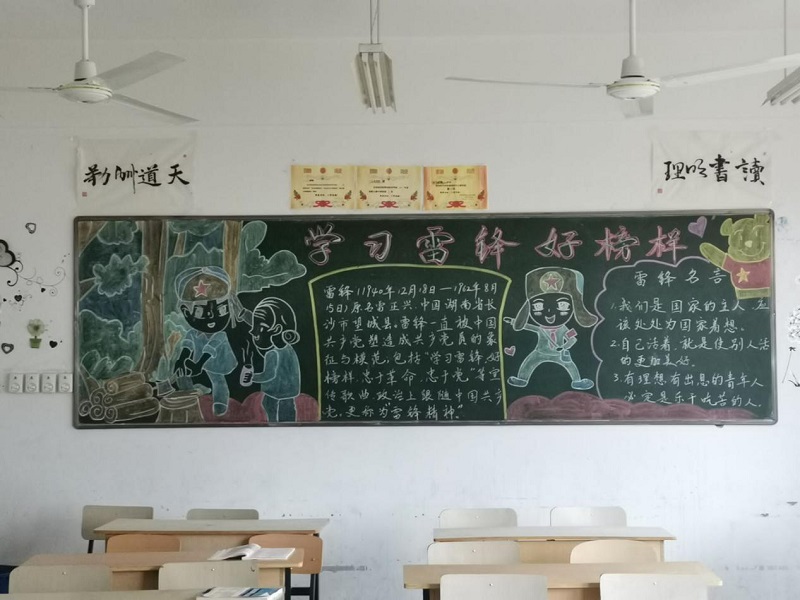 天道酬勤
讀書明理
奖
奖
奖
学习雷锋好榜样
雷锋(1940年12月18日—1962年8月
15日)原名雷正兴,中国湖南省长
沙市望城县,雷锋一直被中国
共产党塑造成共产党员的象
征与模范,包括“学习雷锋好
榜样,忠于革命,忠于党”等宣
传歌曲,政治上跟随中国共产
党,更称为“雷锋精神”
雷锋名言
1.我们是国家的主人,应
该处处为国家着想。
2.自己活着,就是使别人活
的更加美好。
3.有理想有出息的青年人
必定是乐于吃苦的人.